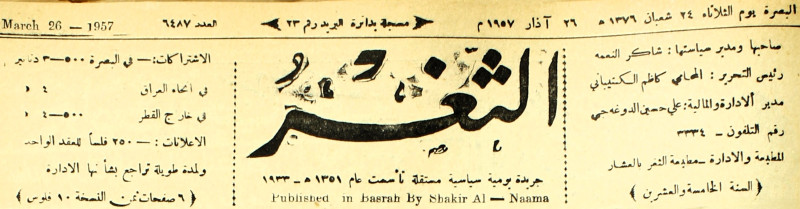 البصرة يوم الثلاثاء ٢٤ شعبان ١٣٧٦ ه ٢٦ آذار ١٩٥٧ م مسجلة بدائرة البريد رقم ٢٣ العدد ٦٤٨٧ March 26 — 1957
صاحبها ومدير سياستها : شاكر النعمه
رئيس التحرير : المحامي كاظم الكتيباني
مدير الادارة والمالية : علي حسين الدوغه جي
رقم التلفون ـ ٣٣٣٤
المطبعة والادارة ـ مطبعة الثغر بالعشار
( السنة الخامسة والعشرين )
الثغر
جريدة يومية سياسية مستقلة تأسست عام ١٣٥١ ه ـ ١٩٣٣
Published in Basrah By Shakir Al — Naama
الاشتراكات : — في البصرة ٥٠٠—٣ دنانير
في انحاء العراق ٤ »
في خارج القطر ٥٠٠—٤ »
الاعلانات : — ٢٥٠ فلساً للعقد الواحد
ولمدة طويلة تراجع بشأنها الادارة
( ٦ صفحات ثمن النسخة ١٠ فلوس )